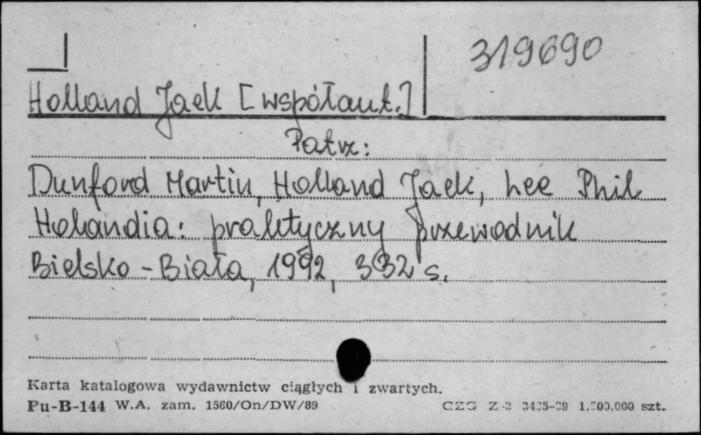 319690
Holland Jack [współaut.]
Patrz:
Dunford Martin, Holland Jack, Lee Phil
Holandia: praktyczny przewodnik
Bielsko-Biała, 1992, 332 s.
Karta katalogowa wydawnictw ciągłych i zwartych.
Pu-B-144 W.A. zam. 1560/On/DW/89 CZG Z-3 3435-89 1.500.000 szt.